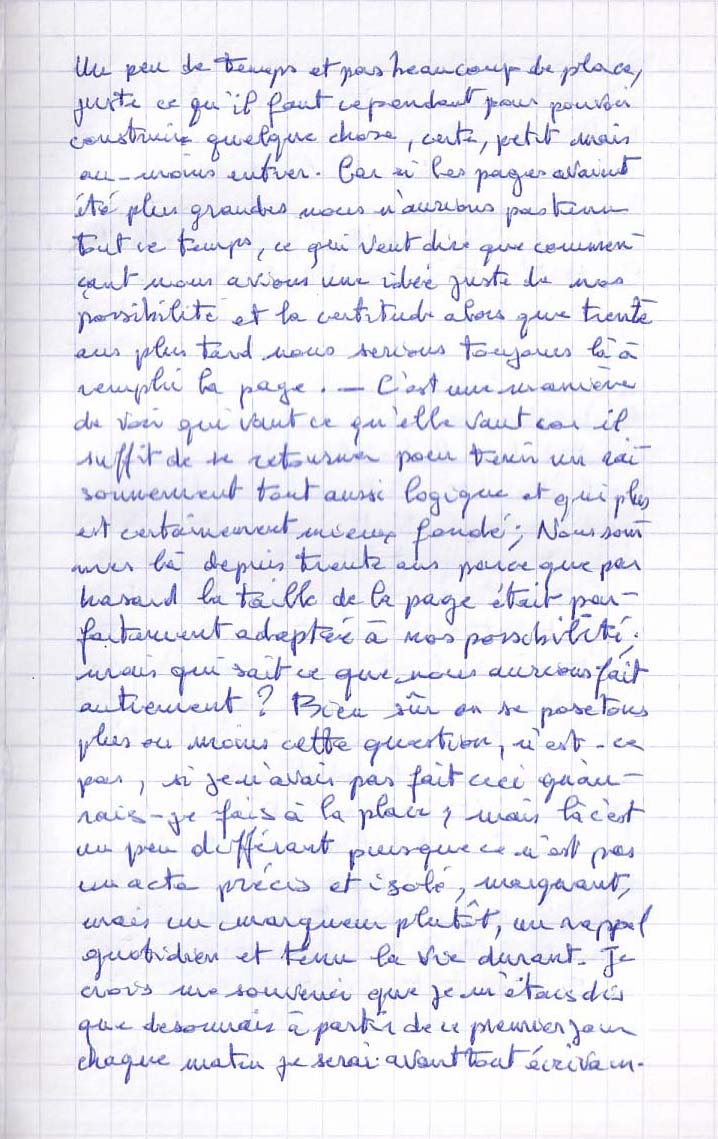 Un peu de temps et pas beaucoup de place,
juste ce qu'il faut cependant pour pouvoir
construire quelque chose, certe, petit mais
au-moins entier. Car si les pages avaient
été plus grandes nous n'aurions pas tenu
tout ce temps, ce qui veut dire que commen-
çant nous avions une idée juste de nos
possibilité et la certitude alors que trente
ans plus tard nous serions toujours là à
remplir la page. — C'est une manière
de voir qui vaut ce qu'elle vaut car il
suffit de se retourner pour tenir un rai-
sonnement tout aussi logique et qui plus
est certainement mieux fondé; Nous som-
mes là depuis trente ans parce que par
hasard la taille de la page était par-
faitement adaptée à nos possibilité.
mais qui sait ce que nous aurions fait
autrement ? Bien sûr on se pose tous
plus ou moins cette question, n'est-ce
pas, si je n'avais pas fait ceci qu'au-
rais-je fais à la place ? mais là c'est
un peu différant puisque ce n'est pas
un acte précis et isolé, marquant,
mais un marqueur plutôt, un rappel
quotidien et tenu la vie durant. Je
crois me souvenir que je m'étais dis
que desormais à partir de ce premier jour
chaque matin je serai avant tout écrivain.